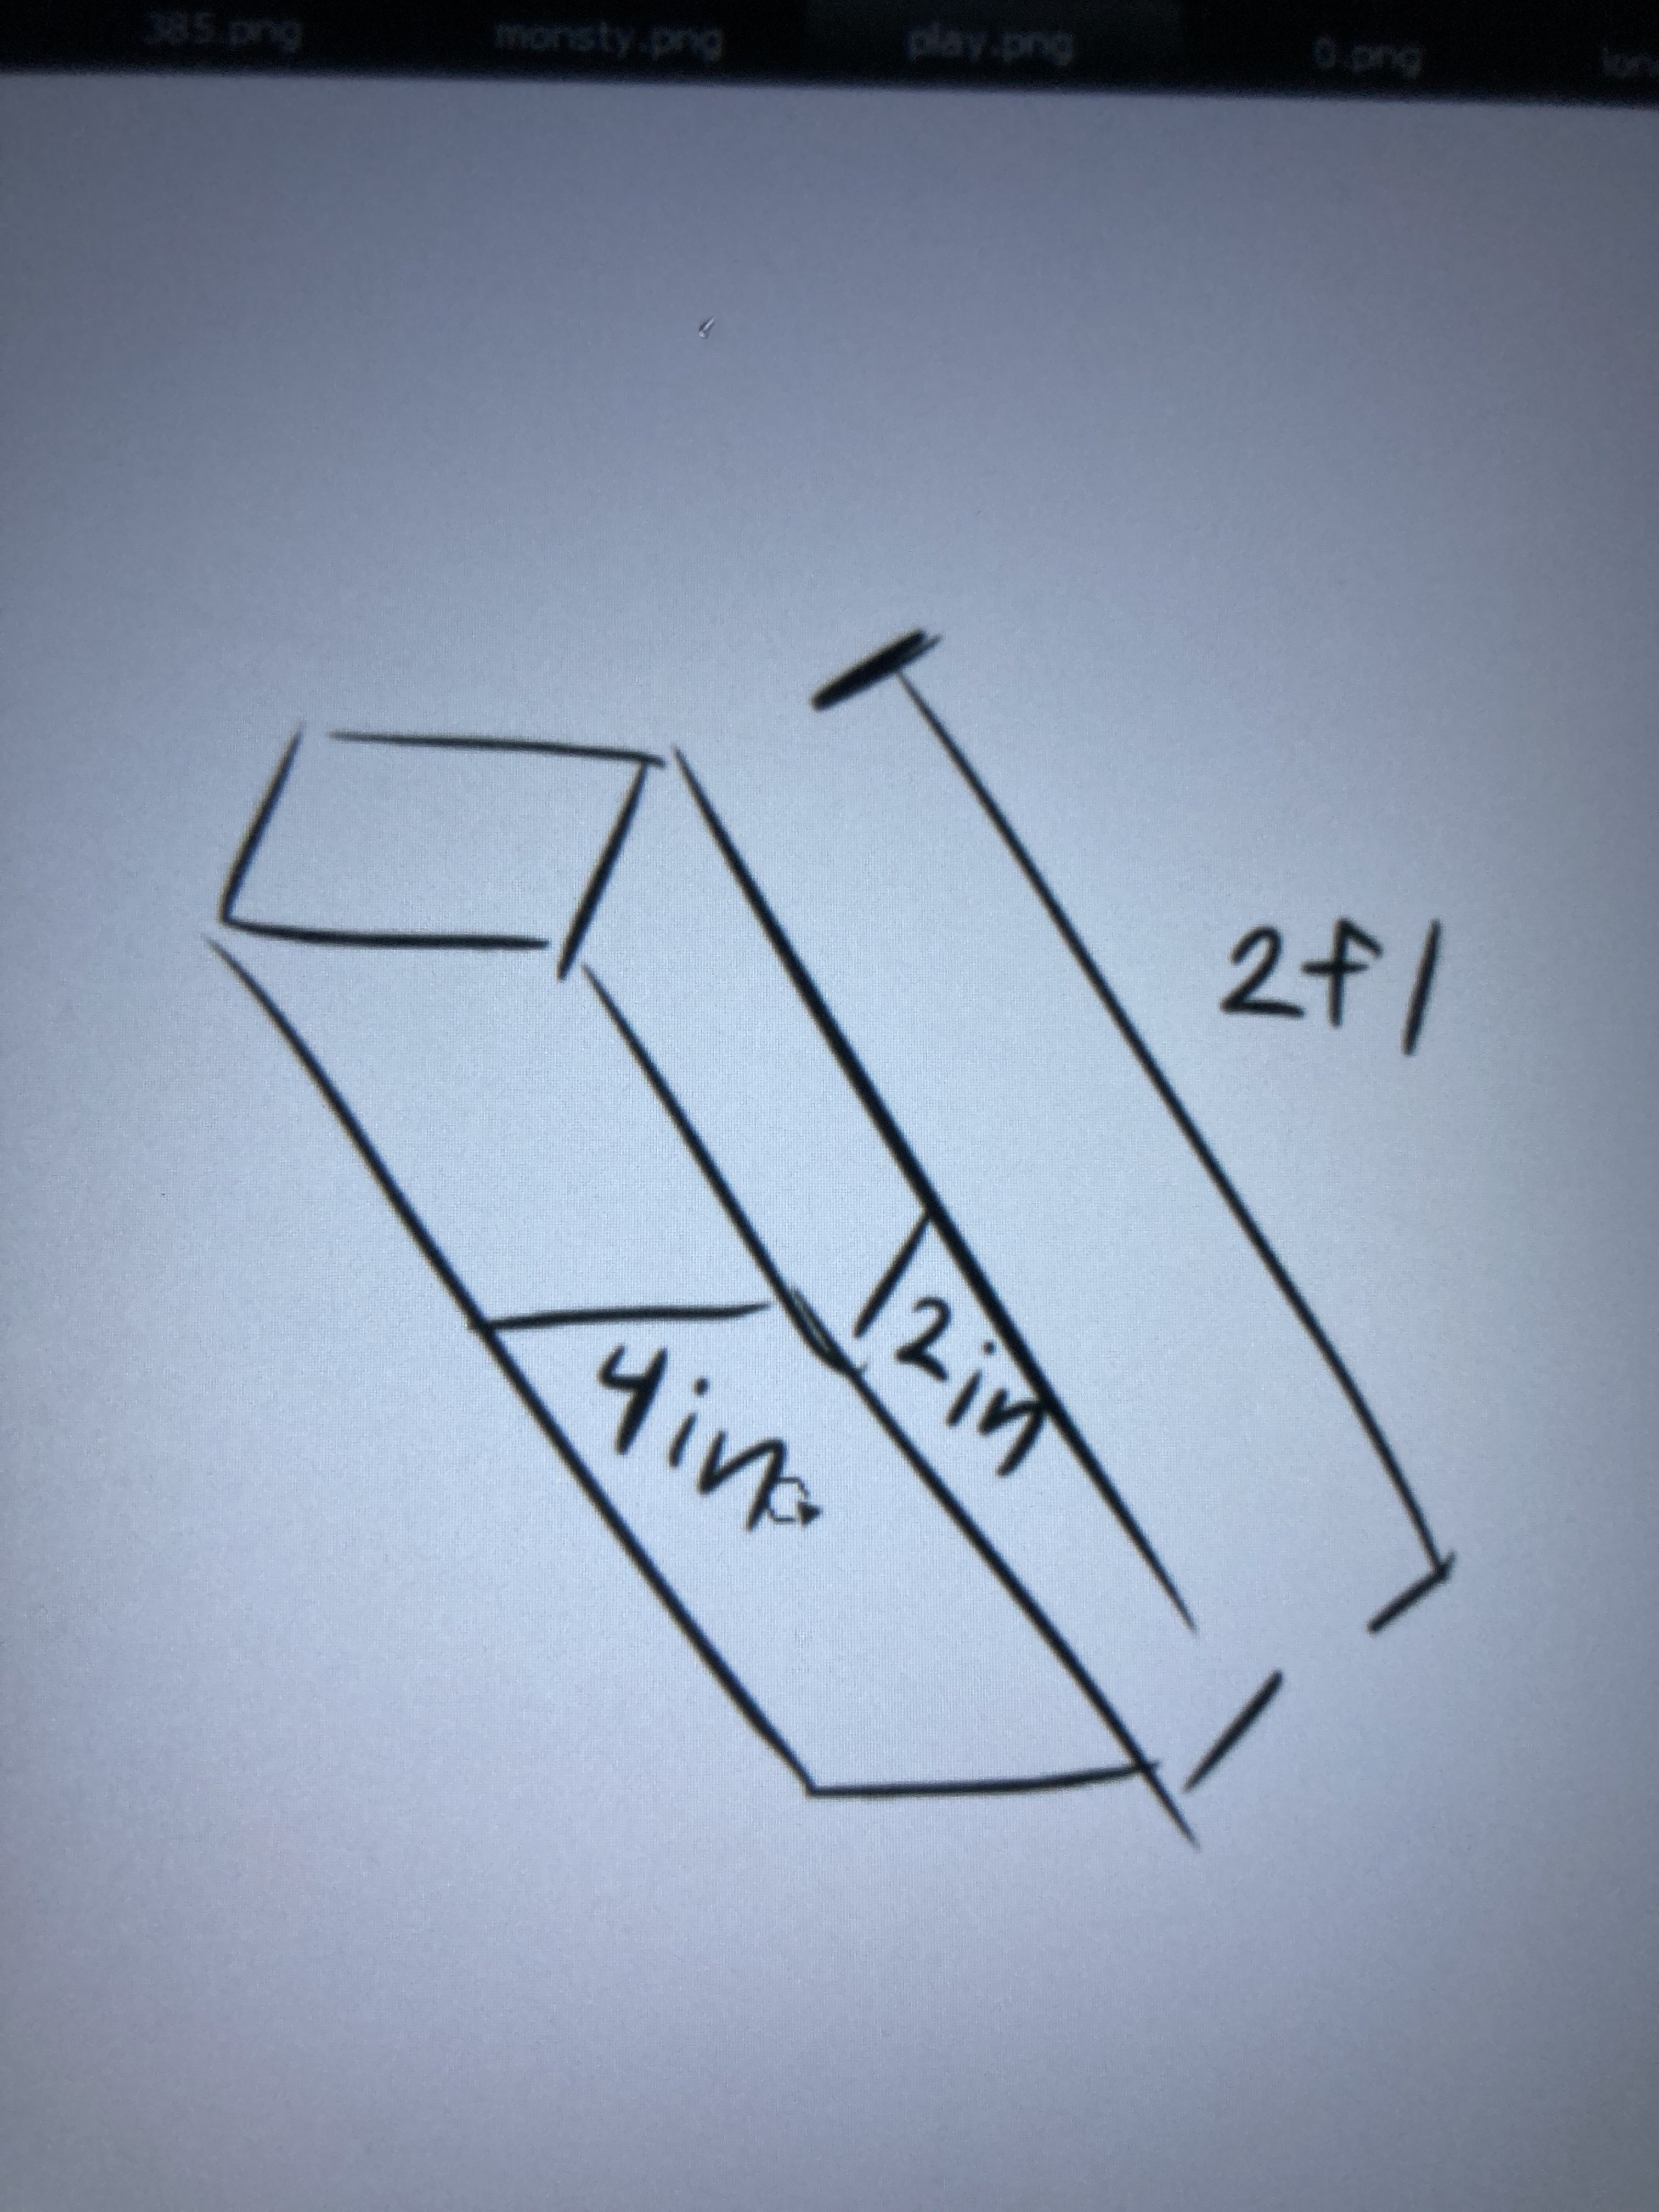 385.png monsty.png play.png 0.png
2f1
4in
2in